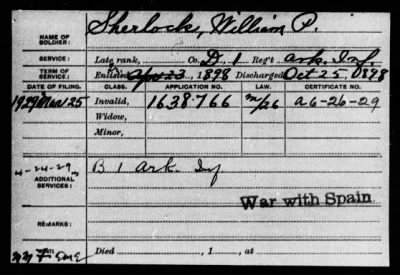 NAME OF SOLDIER: Sherlock, William P.
SERVICE: Late rank, Co. D. 1 Reg't Ark. Inf.
TERM OF SERVICE: Enlisted Apr 23, 1898 Discharged Oct 25, 1898
DATE OF FILING. CLASS. APPLICATION NO. LAW. CERTIFICATE NO.
1929 Mar 25 Invalid, 1638.766 A6-26-29
Widow,
Minor,
4-24-29
ADDITIONAL SERVICES: B 1 Ark. Inf
War with Spain
REMARKS:
Died , 1 , at